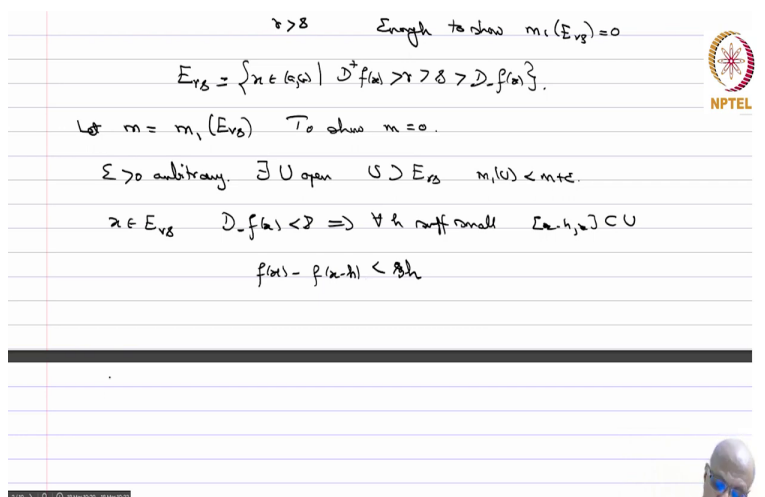 r > s Enough to show m₁(E_rs) = 0
NPTEL
E_rs = {x ∈ (a,b) | D⁺f(x) > r > s > D_-f(x)}.
Let m = m₁(E_rs) To show m = 0.
ε > 0 arbitrary. ∃ U open U ⊃ E_rs m₁(U) < m+ε.
x ∈ E_rs D_-f(x) < s ⇒ ∀ h suff small [x-h, x] ⊂ U
f(x) - f(x-h) < sh